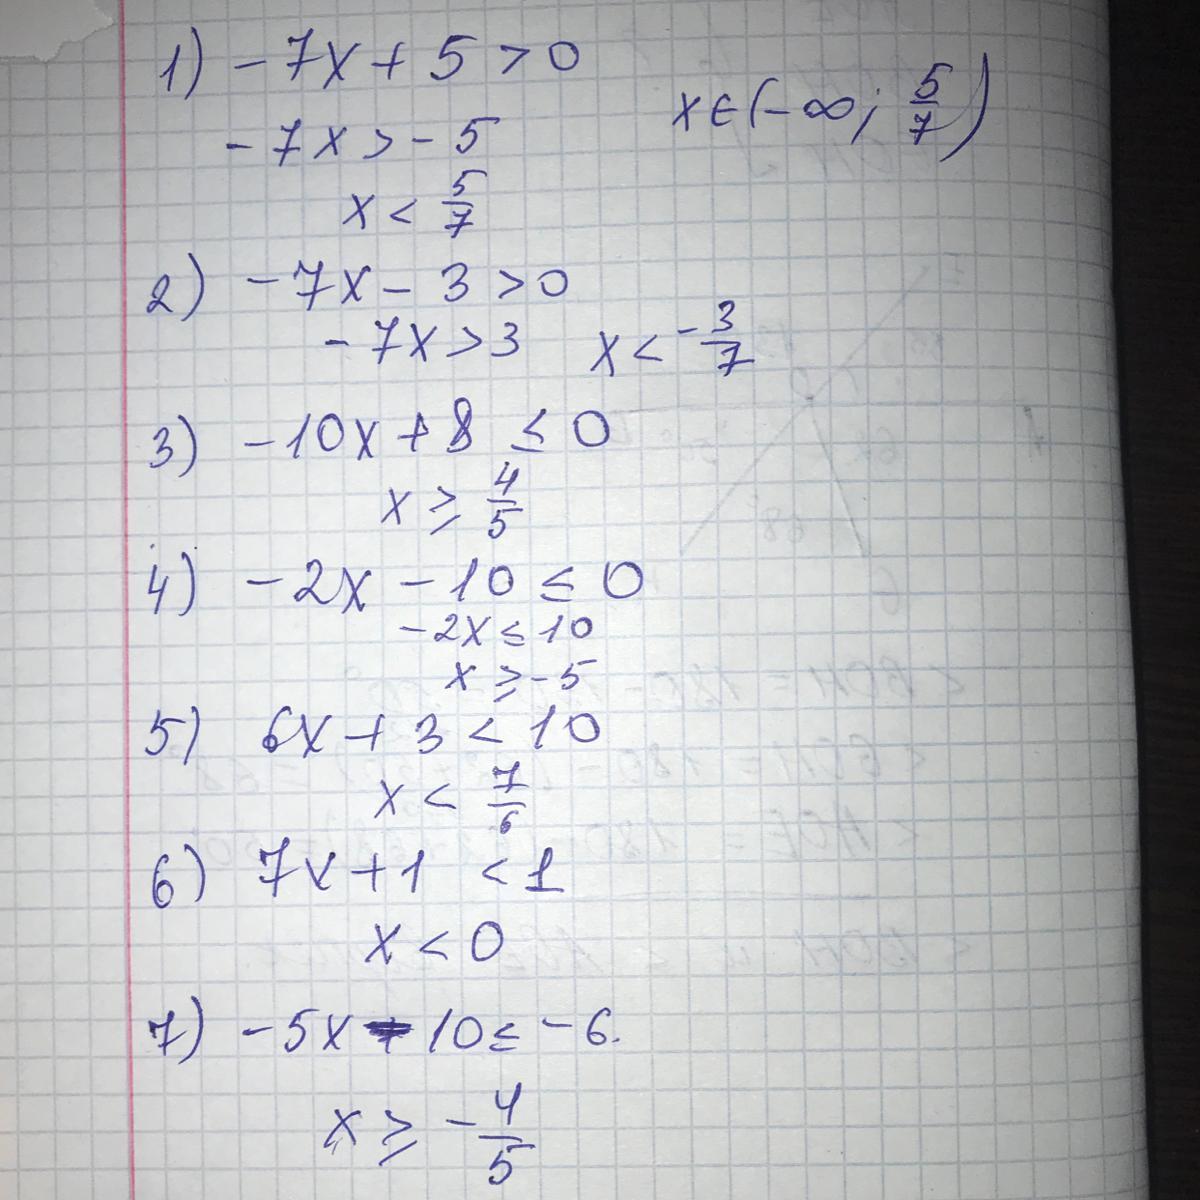 1) -7x + 5 > 0
-7x > -5
x < 5/7
x ∈ (-∞; 5/7)
2) -7x - 3 > 0
-7x > 3 x < -3/7
3) -10x + 8 ≤ 0
x ≥ 4/5
4) -2x - 10 ≤ 0
-2x ≤ 10
x ≥ -5
5) 6x + 3 < 10
x < 7/6
6) 7x + 1 < 1
x < 0
7) -5x - 10 ≤ -6.
x ≥ -4/5